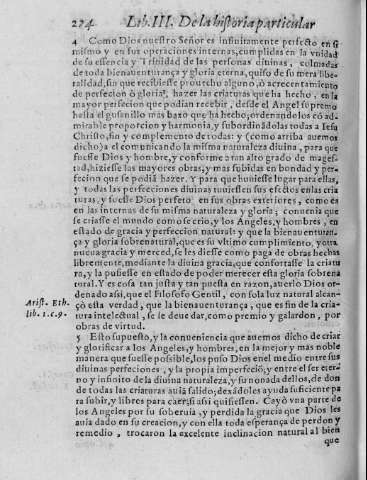 274 Lib. III. De la historia particular
4 Como Dios nuestro Señor es infinitamente perfecto en si
mismo y en sus operaciones internas, cumplidas en la vnidad
de su essencia y Trinidad de las personas diuinas, colmadas
de toda bienauenturança y gloria eterna, quiso de su mera libe-
ralidad, sin que recibiesse prouecho alguno, ò acrecentamiento
de perfecion ò gloria, hazer las criaturas que ha hecho, en la
mayor perfecion que podian recebir, desde el Angel supremo
hasta el gusanillo mas baxo que ha hecho, ordenandolos cō ad-
mirable proporcion y harmonia, y subordinãdolas todas a Iesu
Christo, fin y complemento de todas: y (como arriba auemos
dicho) a el comunicando la misma naturaleza diuina, para que
fuesse Dios y hombre, y conforme a ran alto grado de mages-
tad, hiziesse las mayores obras, y mas subidas en bondad y per-
fecion que se podiã hazer. Y para que huuiesse lugar para ellas,
y todas las perfecciones diuinas tuuiessen sus efectos en las cria
turas, y fuesse Dios perfeto en sus obras exteriores, como es
en las internas de su misma naturaleza y gloria; conuenia que
se criasse el mundo como se crio, y los Angeles, y hombres, en
estado de gracia y perfeccion natural: y que la bienauenturan-
ça y gloria sobrenatural, que es su vltimo cumplimiento, y otra
nueua gracia y merced, se les diesse como paga de obras hechas
libremente, mediante la diuina gracia, que confortasse la criatu
ra, y la pusiesse en estado de poder merecer esta gloria sobrena
tural. Y es cosa tan justa y tan puesta en razon, auerlo Dios or-
denado assi, que el Filosofo Gentil, con sola luz natural alcan-
çò esta verdad, que la bienauenturança, que es fin de la cria-
tura intelectual, se le deue dar, como premio y galardon, por
obras de virtud.
Arist. Eth.
lib. 1. c. 9.
5 Esto supuesto, y la conueniencia que auemos dicho de criar
y glorificar a los Angeles, y hombres, en la mejor y mas noble
manera que fuesse possible, los puso Dios en el medio entre sus
diuinas perfeciones, y la propia imperfeciō, y entre el ser eter-
no y infinito de la diuina naturaleza, y su nonada dellos, de don
de todas las criaturas auiã salido; dexãdoles ayuda suficiente pa
ra subir, y libres para caer, si assi quisiessen. Cayò vna parte de
los Angeles por su soberuia, y perdida la gracia que Dios les
auia dado en su creacion, y con ella toda esperança de perdon y
remedio, trocaron la excelente inclinacion natural al bien
que